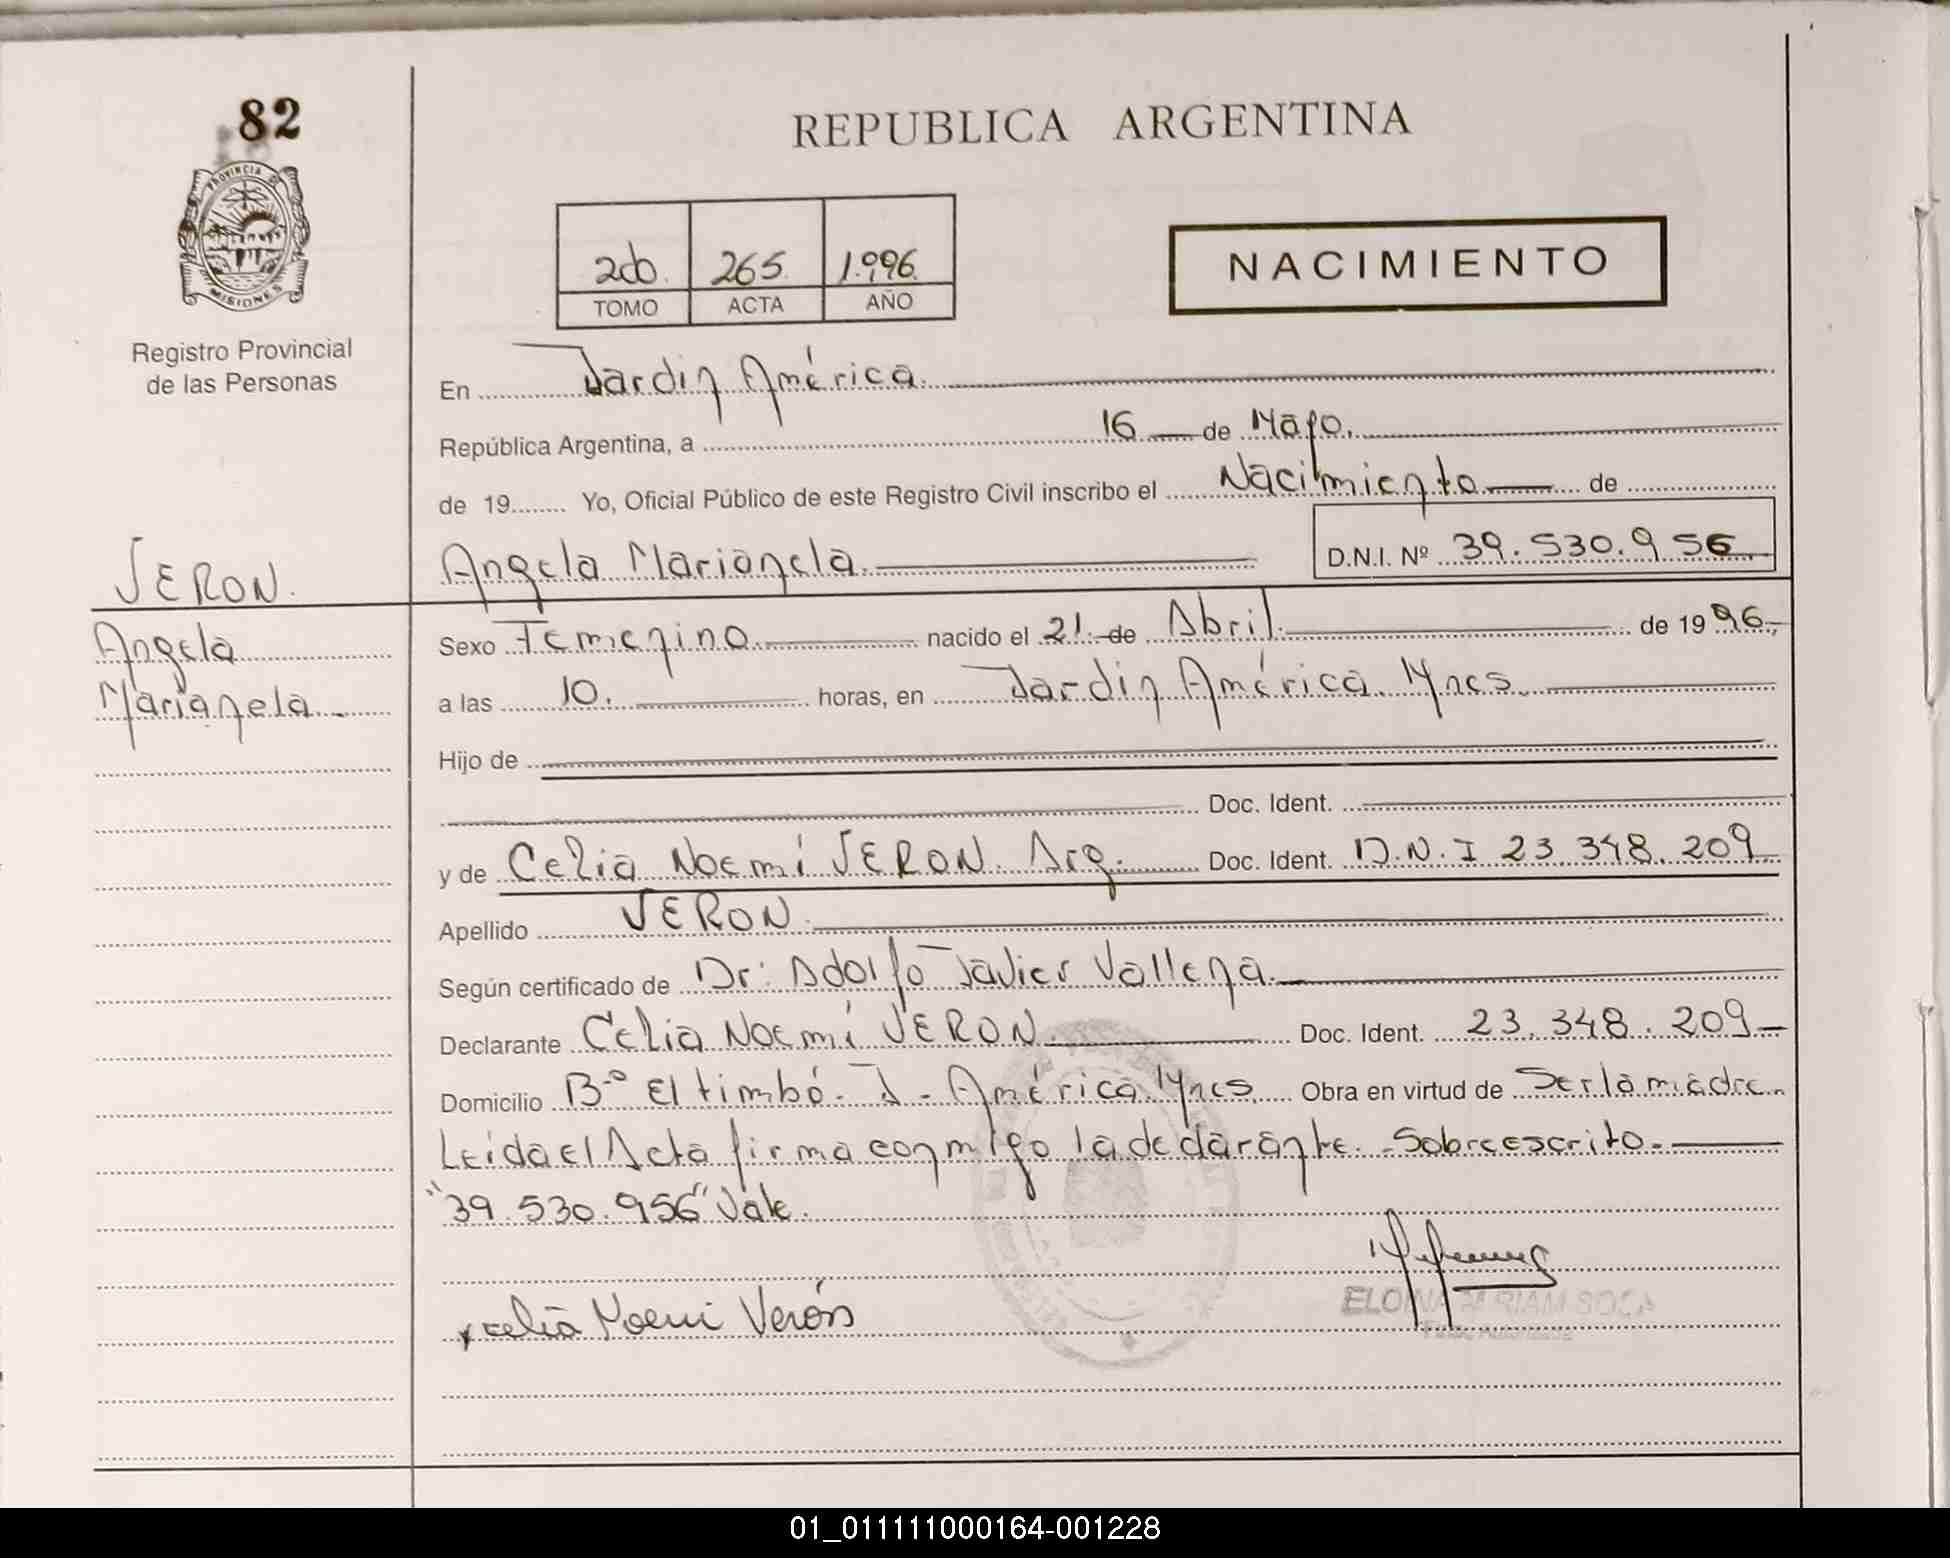 82
REPUBLICA ARGENTINA
PROVINCIA DE
MISIONES
2do. 265. 1.996.
TOMO ACTA AÑO
NACIMIENTO
Registro Provincial
de las Personas
En Jardin América.
República Argentina, a 16 de Mayo.
de 19 Yo, Oficial Público de este Registro Civil inscribo el Nacimiento de
Angela Marianela. D.N.I. Nº 39.530.956
VERON.
Angela
Marianela
Sexo Femenino. nacido el 21 de Abril. de 1996.
a las 10. horas, en Jardin América. Mnes.
Hijo de
Doc. Ident.
y de Celia Noemí VERON. Arg. Doc. Ident. D.N.I 23.348.209
Apellido VERON.
Según certificado de Dr: Adolfo Javier Vallena.
Declarante Celia Noemí VERON. Doc. Ident. 23.348.209
Domicilio Bº El timbó. J. América. Mnes. Obra en virtud de Ser la madre.
Leida el Acta firma conmigo la declarante. Sobreescrito.
"39.530.956" Vale.
Celia Noemi Verón
01_011111000164-001228